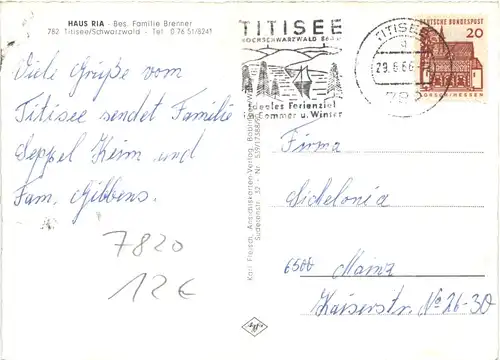 HAUS RIA - Bes. Familie Brenner
782 Titisee/Schwarzwald - Tel. 0 76 51/8241
Viele Grüße vom
Titisee sendet Familie
Seppel Keim und
Fam. Gibbens.
7820
12€
TITISEE
HOCHSCHWARZWALD 860 m
Ideales Ferienziel
Sommer u. Winter
TITISEE
29.6.66
782
DEUTSCHE BUNDESPOST
20
LORSCH/HESSEN
Karl Fleisch, Ansichtskarten-Verlag,
Firma
Sichelonia
6500 Mainz
Kaiserstr. No 26-30